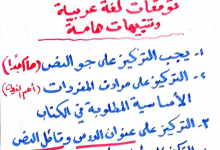 توقعات لغة عربية
وتنبيهات هامة
١- يجب التركيز على جو النص (هاكتبه!)
٢- التركيز على مرادف المفردات (أهم بنود)
الأساسية المطلوبة في الكتاب
٣- التركيز على عنوان الدرس وقائل النص